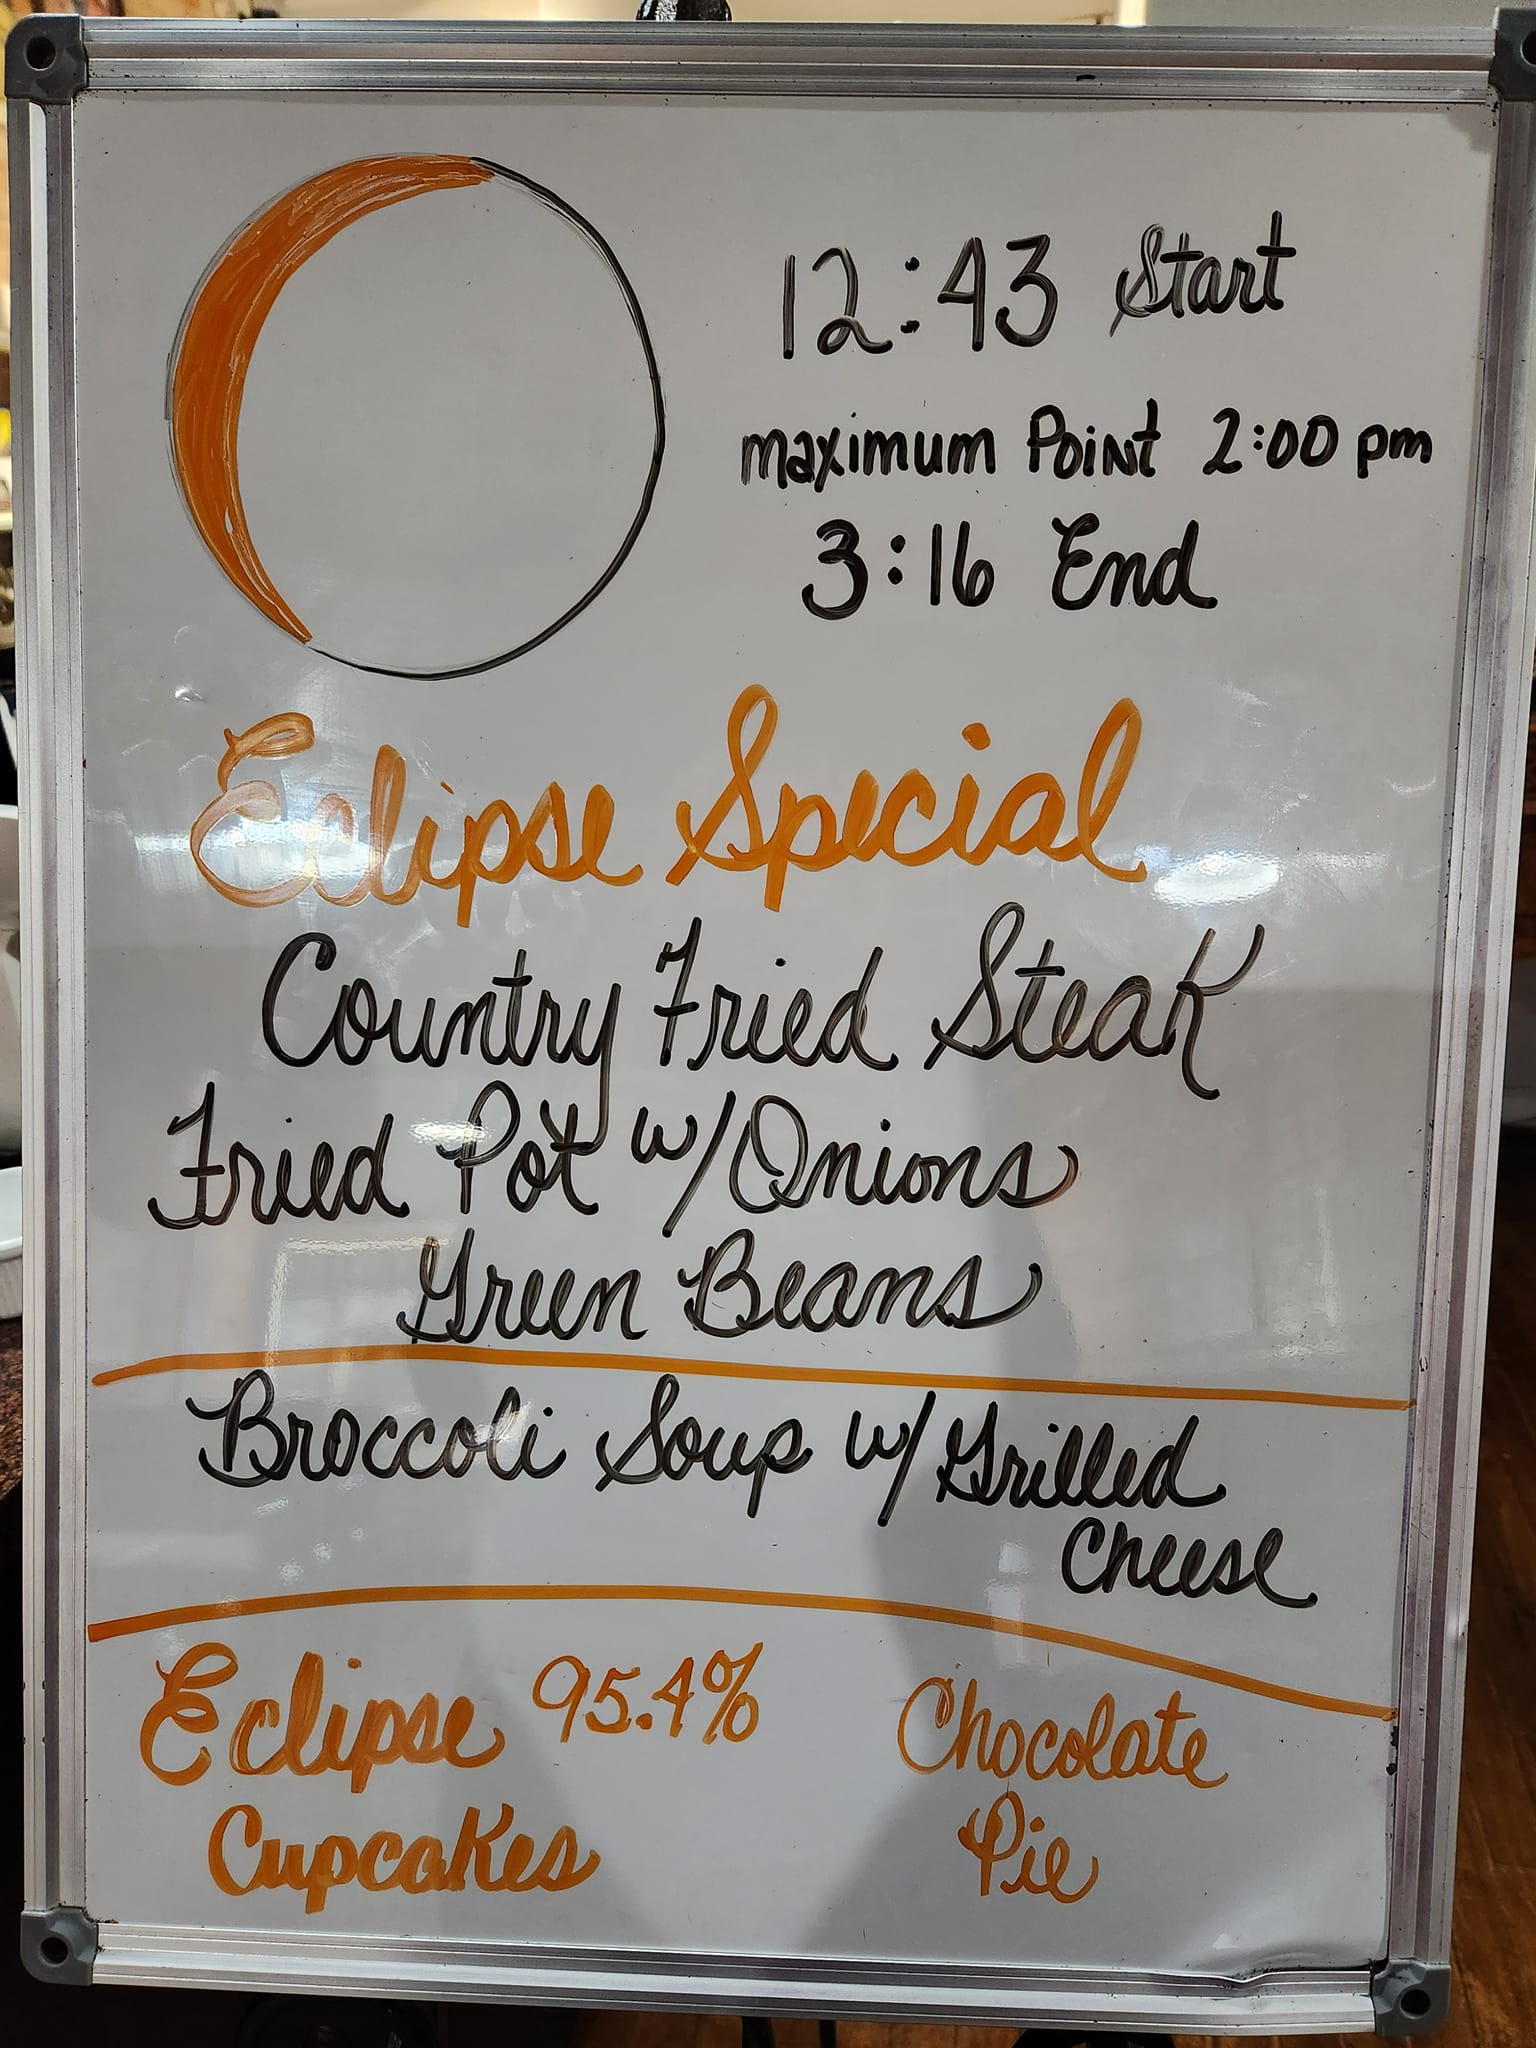 12:43 Start
maximum Point 2:00 pm
3:16 End
Eclipse Special
Country Fried Steak
Fried Pot w/Onions
Green Beans
Broccoli Soup w/Grilled
Cheese
Eclipse 95.4%
Cupcakes
Chocolate
Pie